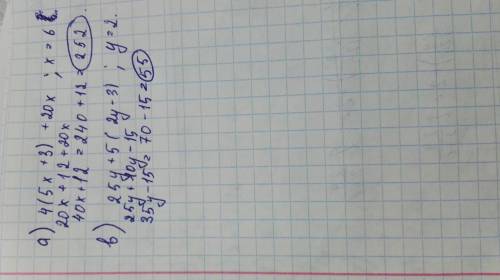 а) 4(5x + 3) + 20x ; x = 6.
20x + 12 + 20x
40x + 12 = 240 + 12 = 252.
в) 25y + 5(2y - 3) ; y = 2.
25y + 10y - 15
35y - 15 = 70 - 15 = 55